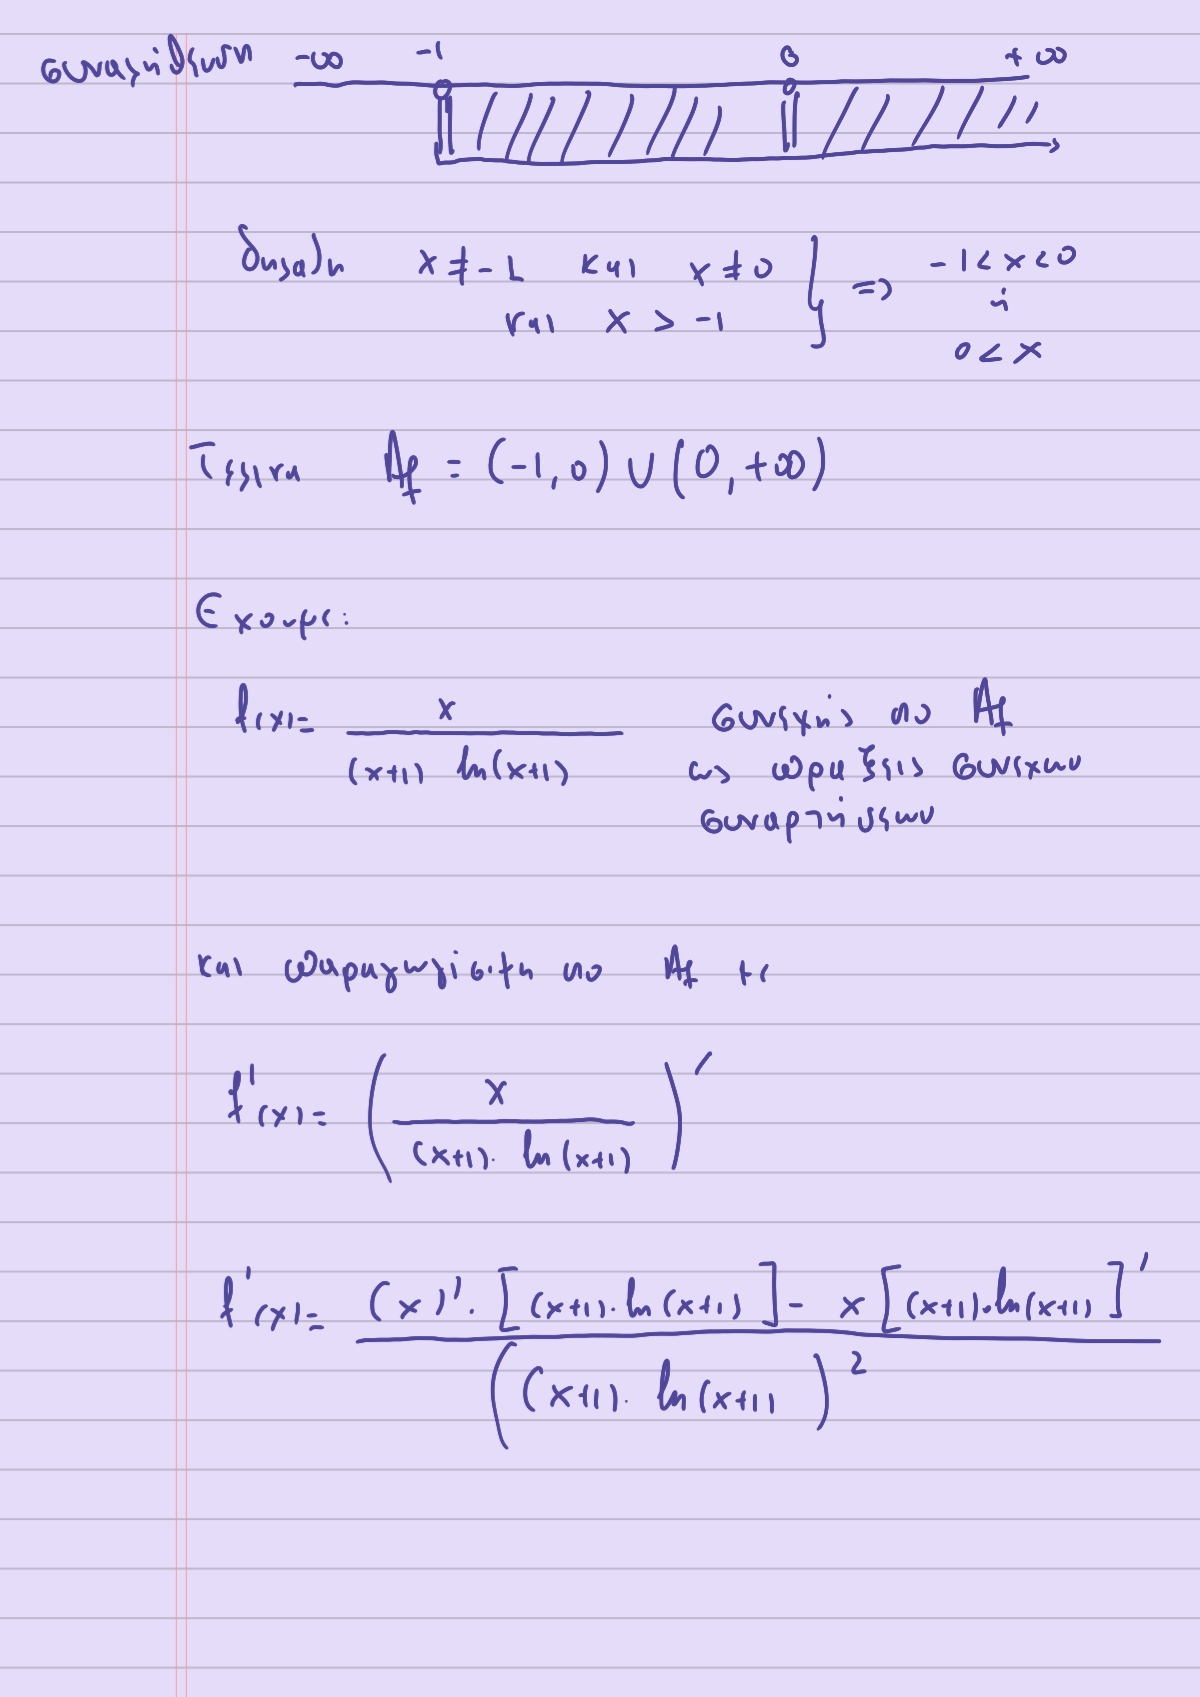 συναρτήσεων -∞ -1 0 +∞
δηλαδή x ≠ -1 και x ≠ 0 } => -1 < x < 0
και x > -1 ή
0 < x
Τελικα Af = (-1, 0) ∪ (0, +∞)
Εχουμε:
f(x) = x / ((x+1) ln(x+1)) συνεχής στο Af
ως πράξεις συνεχων
συναρτήσεων
και παραγωγίσιμη στο Af με
f'(x) = ( x / ((x+1)· ln(x+1)) )'
f'(x) = ( (x)'· [(x+1)·ln(x+1)] - x [(x+1)·ln(x+1)]' ) / ((x+1)· ln(x+1))²